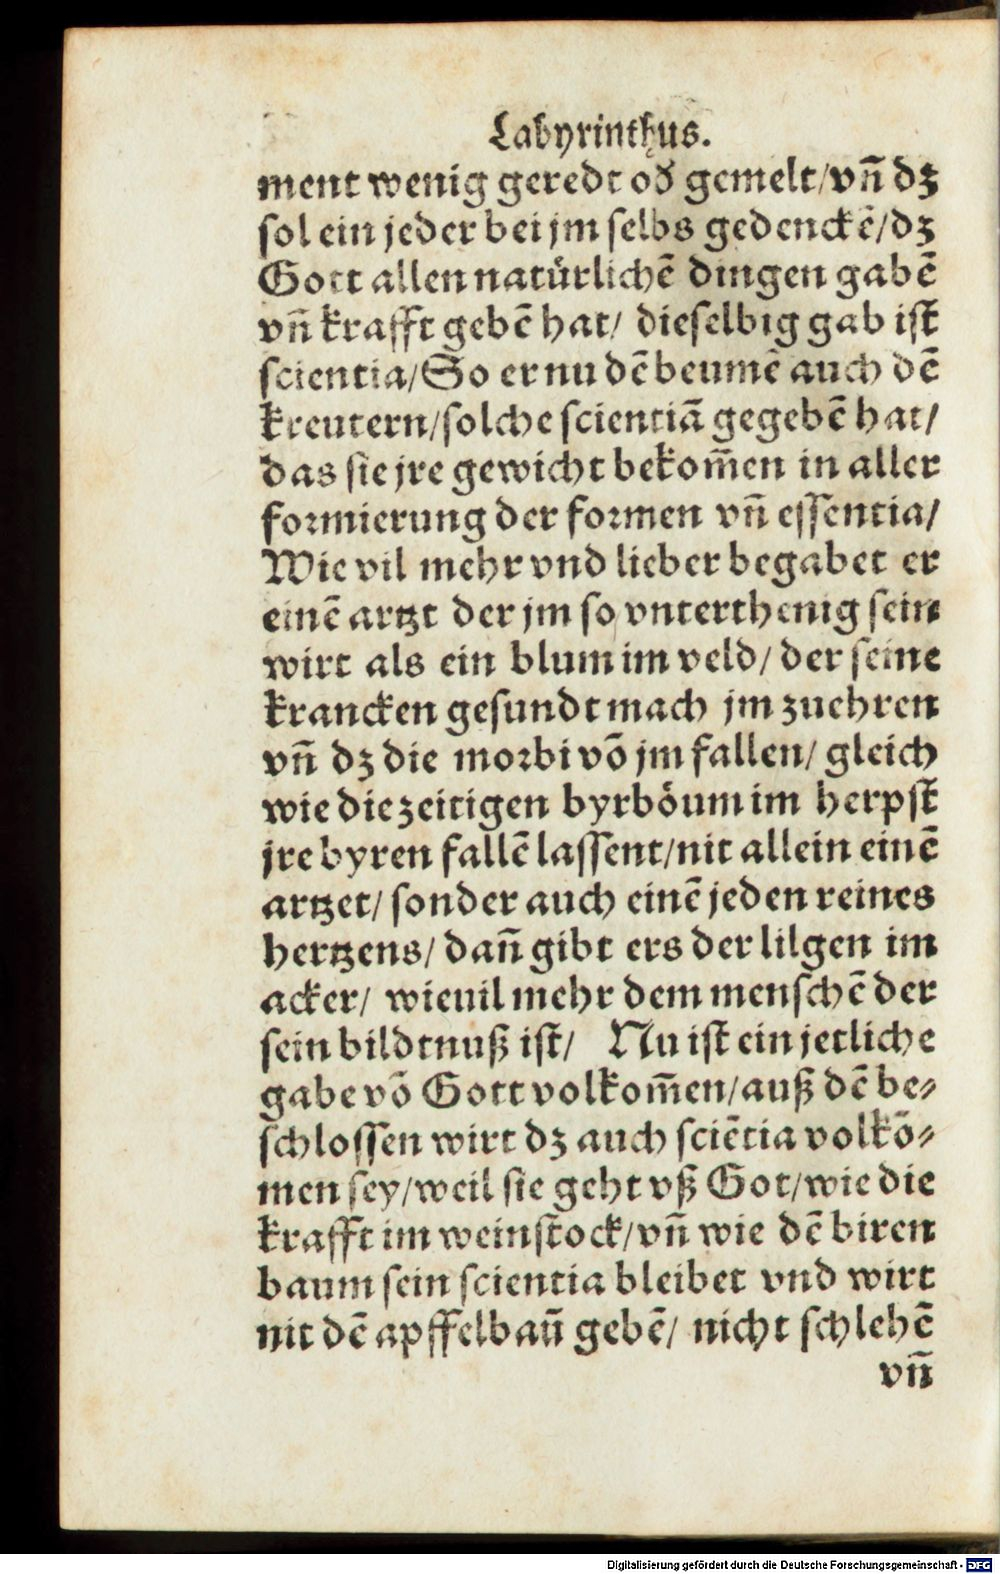 Labyrinthus.
ment wenig geredt oď gemelt/vñ dz
sol ein jeder bei jm selbs gedenckẽ/dz
Gott allen natürlichẽ dingen gabẽ
vñ krafft gebẽ hat/ dieselbig gab ist
scientia/So er nu dẽ beumẽ auch dẽ
kreutern/solche scientiã gegebẽ hat/
das sie jre gewicht bekom̃en in aller
formierung der formen vñ essentia/
Wie vil mehr vnd lieber begabet er
einẽ artzt der jm so vnterthenig sein
wirt als ein blum im veld/ der seine
krancken gesundt mach jm zuehren
vñ dz die morbi võ jm fallen/ gleich
wie die zeitigen byrböum im herpst
jre byren fallẽ lassent/nit allein einẽ
artzet/ sonder auch einẽ jeden reines
hertzens/ dañ gibt ers der lilgen im
acker/ wieuil mehr dem menschẽ der
sein bildtnuß ist/ Nu ist ein jetliche
gabe võ Gott volkom̃en/auß dẽ be⸗
schlossen wirt dz auch sciẽtia volkõ⸗
men sey/weil sie geht vß Got/wie die
krafft im weinstock/vñ wie dẽ biren
baum sein scientia bleibet vnd wirt
nit dẽ apffelbaũ gebẽ/ nicht schlehẽ
vñ
Digitalisierung gefördert durch die Deutsche Forschungsgemeinschaft - DFG